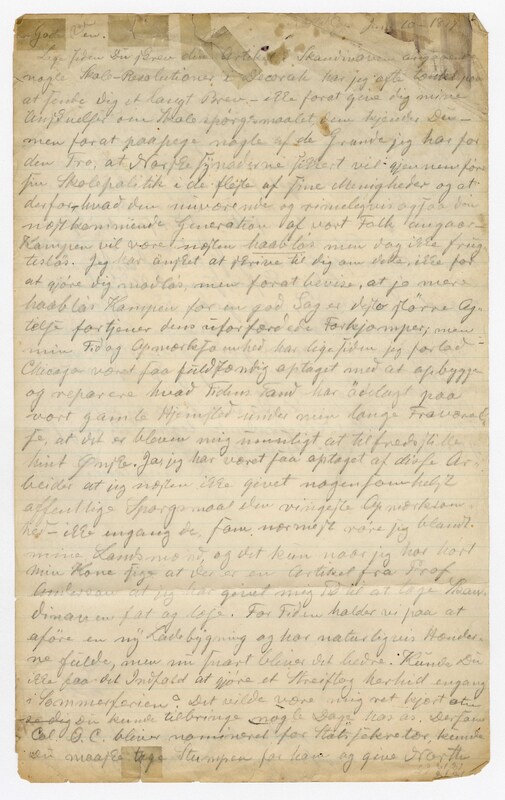 Gode Ven. Juni 10 - 1877.
Lige siden Du skrev den Artikel i Skandinaven angaaende
nogle Skole-Resolutioner i Decorah har jeg ofte tænkt paa
at sende Dig et langt Brev, – ikke forat give dig mine
Anskuelser om Skolespørgsmaalet, dem kjender Du –
men forat paapege nogle af de Grunde jeg har for
den Tro, at Norske Synoderne sikkert vil gjennemføre
sin Skolepolitik i de fleste af sine Menigheder og at
derfor, hvad den nuværende og rimeligvis ogsaa den
næstkommende Generation af vort Folk angaar –
Kampen vil være næsten haabløs men dog ikke frug-
tesløs. Jeg har ønsket at skrive til dig om dette, ikke for
at gjøre dig modløs, men forat bevise, at jo mere
haabløs Kampen for en god Sag er, desto større Ag-
telse fortjener dens uforfærdede Forkjæmper; men
min Tid og Opmærksomhed har lige siden jeg forlod
Chicago været saa fuldstændig optaget med at opbygge
og reparere hvad Tidens Tand har ødelagt paa
vort gamle Hjemsted under min lange Fraværel-
se, at det er bleven mig umuligt at tilfredsstille
hint Ønske. Ja, jeg har været saa optaget af disse Ar-
beider at jeg næsten ikke givet nogensomhelst
offentlige Spørgsmaal den ringeste Opmærksom-
hed – ikke engang de, som nærmest røre sig blandt
mine Landsmænd, og det kun naar jeg har hørt
min Kone sige at der er en Artikel fra Prof.
Anderson at jeg har givet mig Tid til at tage Skan-
dinaven fat og læse. For Tiden holder vi paa at
opføre en ny Ladebygning og har naturligvis Hænder-
ne fulde, men nu snart bliver det bedre. Kunde Du
ikke faa det Indfald at gjøre et Streiftog herhid engang
i Sommerferien? Det vilde være mig ret kjært om
Du kunde tilbringe nogle Dage hos os. Dersom
Col. O.C. bliver nomineret for Statssekretær, kunde
Du maaske tage Stumpen for ham og give North